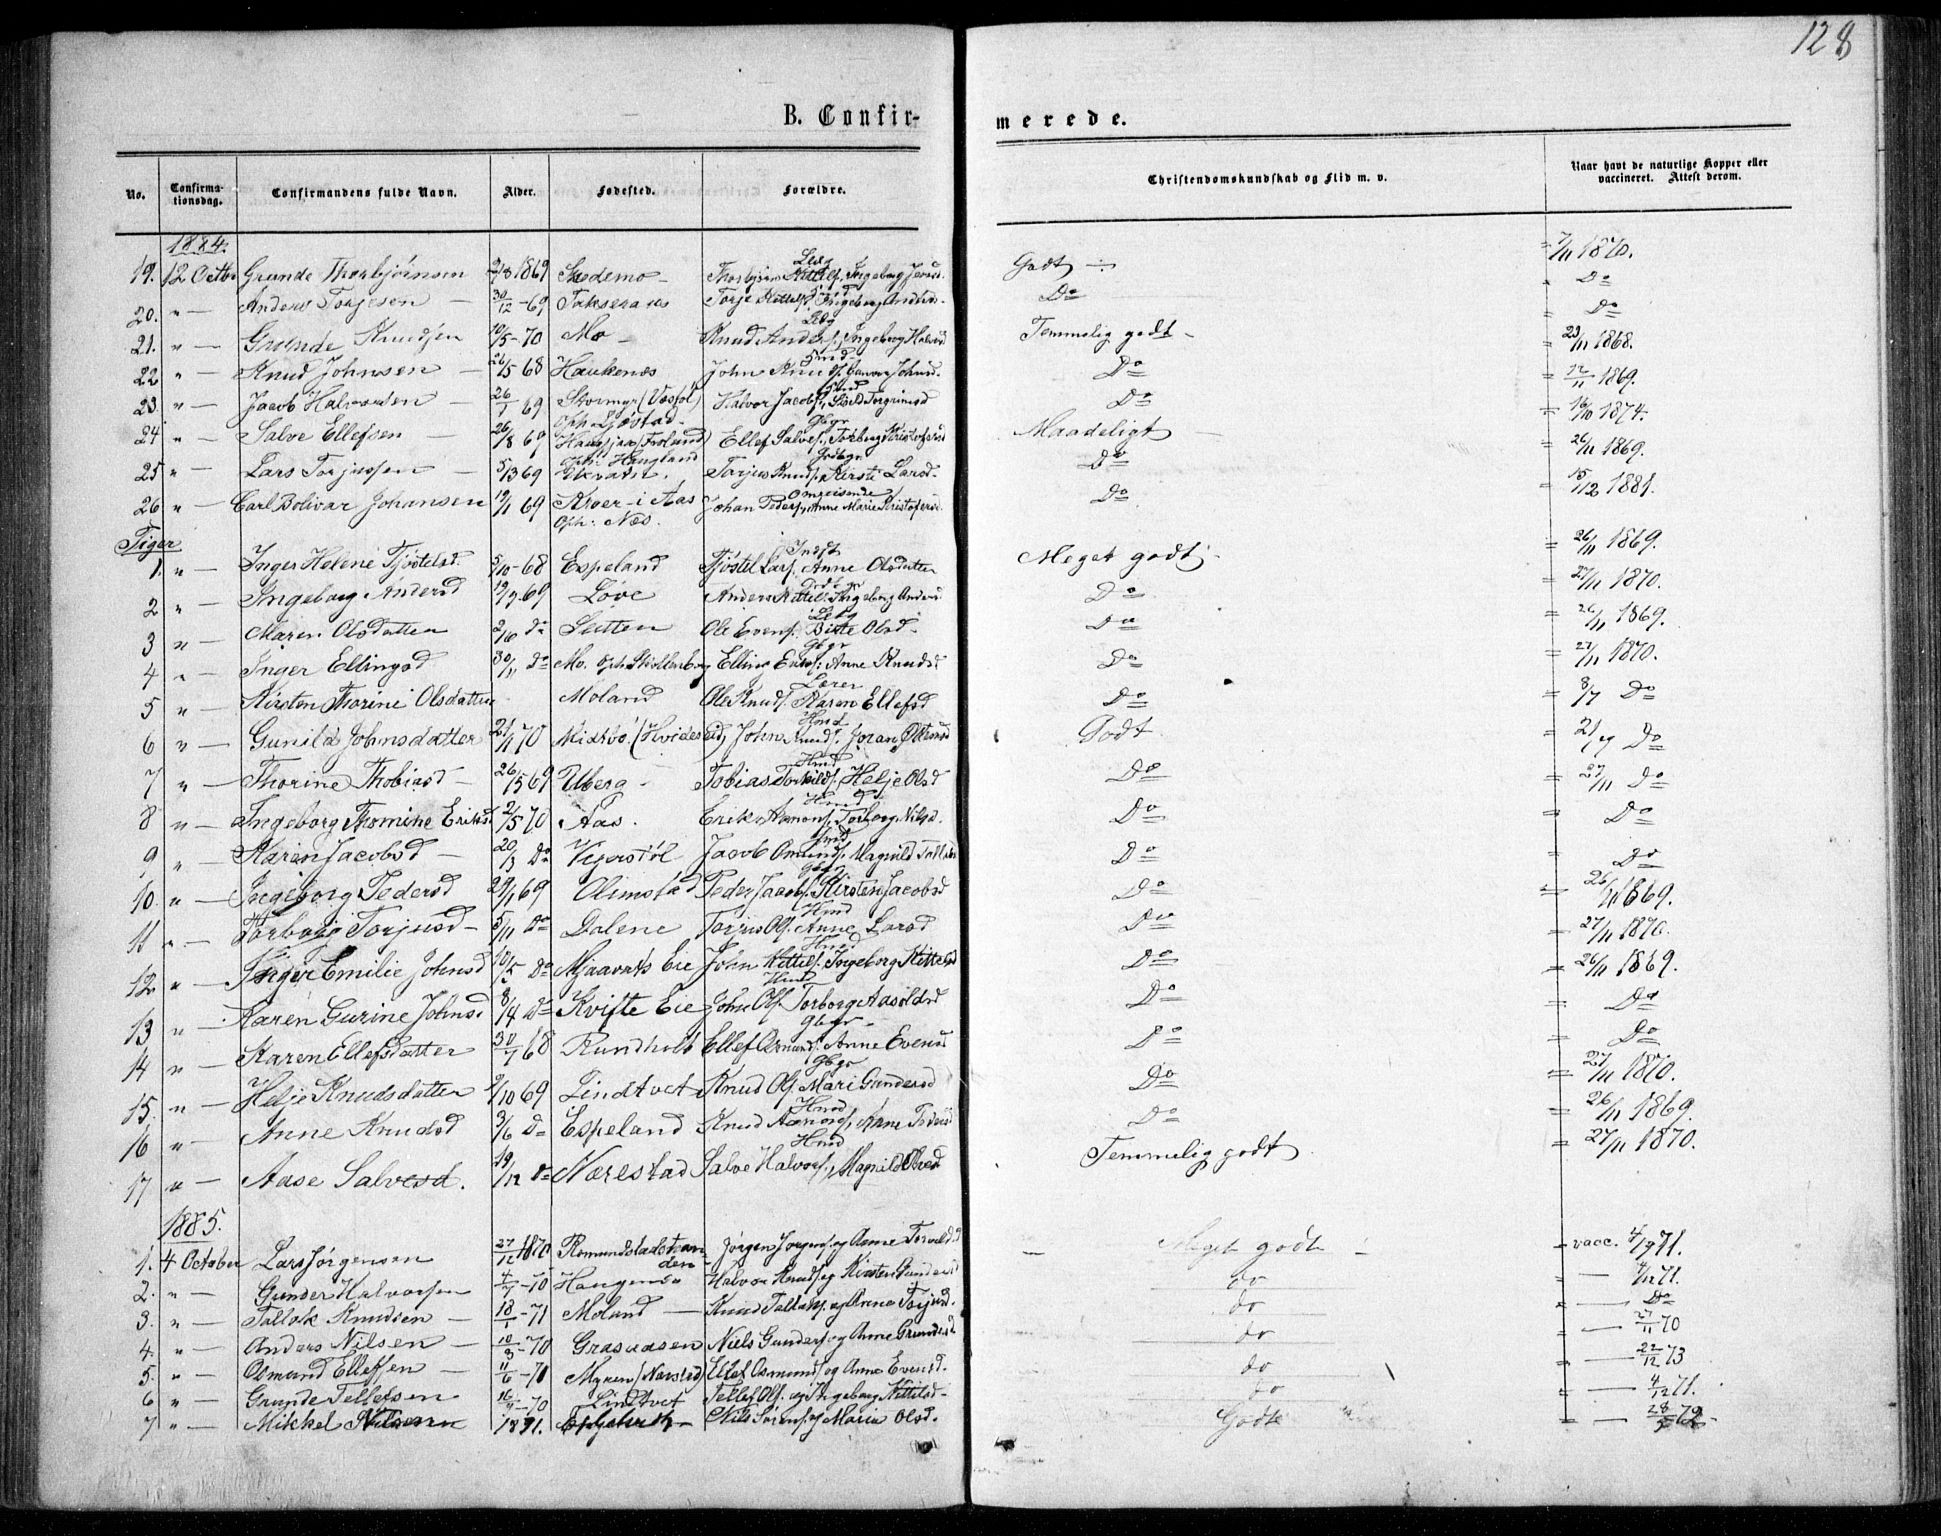 128
B. Confir- merede.
No. Confirmationsdag. Confirmandens fulde Navn. Alder. Fødested. Forældre. Christendomskundskab og Flid m. v. Naar havt de naturlige Kopper eller vaccineret. Attest derom.
1884.
19. 12 Octbr Grunde Thorbjørnsen 1869 Skedemo Godt 7/11 1870.
20. " — Anders Torjesen — 30/12 - 69 Do Do
21. " — Grunde Knudsen 10/5 - 70 Mo Knud Anders. Ingeborg Halvorsd Temmelig godt - Do
22 " — Knud Johnsen — 26/5 68 Haukenæs John Knuds. Johnsd. Do 23/11 1868.
23. " — Jacob Halvorsen — 26/1 69 Stormyr (Vegs) Halvor Jacobs. Torgrimsd Do 12/11 1869.
24 " — Salve Ellefsen — 26/8 69 Oph. Ljøstad. (Froland) Ellef Salves. Torborg Kristofersd Maadeligt 16/10 1874.
25 " — Lars Torjussen — 5/3 69 Oph. Haugland Torjus Knuds. Kirsti Larsd. Do 26/11 1869.
26 " — Carl Bolivar Johansen 19/1 69 Kroer i Aas Oph: Næs. Omreisende Johan Peders. Anne Marie Kristofersd. Do 15/12 1881.
Piger
1. " Inger Helene Tjøstelsd 5/10 - 68 Espeland Tjøstel Lars. Anne Olsdatter Meget godt 26/11 1869.
2 " — Ingeborg Andersd 19/9 69 Løve Anders Kittils. Ingeborg Andersd Do 27/11 1870.
3 " — Maren Olsdatter 2/10 Do Sutten Ole Evens. Birte Olsd - Do 26/11 1869.
4 " — Inger Ellingsd 30/11 Do Mo. Elling Anne Knudsd Do 27/11 1870.
5 " — Kirsten Thorine Olsdatter Moland Lærer Ole Knuds. Karen Ellefsd Do 8/7 Do
6 " — Gunild Johnsdatter 21/1 70 Midtbø (Hvideseid) John Knuds. Joran Godt 21/9 Do
7 " — Thorine Thobiasd — 26/5 69 Ulberg - Hmd Tobias Torkilds. Helje Olsd Do 27/11 Do
8 " — Ingeborg Thomine Eriksd 2/5 70 Aas. Hmd Erik Aanons. Torborg Nilsd. Do Do
9 " Karen Jacobsd — 20/3 Do Vegerstøl Jacob Omunds. Magnild Do Do
10. " — Ingeborg Pedersd 29/1 69 Olimstad Peder Jacobs. Kirsten Jacobsd Do 26/11 1869.
11 " — Torborg Torjusd — 5/11 Do Dalene Hmd Torjus Ols. Anne Larsd Do 27/11 1870.
12 " — Inger Emilie Johnsd 10/5 Do Mjaavats Eie Hmd John Kittils. Ingeborg Kittelsd Do 26/11 1869.
13 " — Karen Gurine Johnsd 8/4 Do Kvifte Eie Hmd John Ols. Torborg Aasoldsd Do Do
14 " — Karen Ellefsdatter 30/7 68 Rundholt Gbgr Ellef Osmunds. Anne Evensd Do Do
15. " — Helje Knudsdatter 9/10 69 Lindtvet Gbgr Knud Ols. Mari Gundersd Do 27/11 1870.
16 " — Anne Knudsd 3/6 Do Espeland Hmd Knud Aanons. Anne Do 26/11 1869.
17 " — Aase Salvesd. 19/12 Do Nærestad Hmd Salve Halvors. Magnild Olsd Temmelig godt 27/11 1870.
1885.
1. 4 October Lars Jørgensen 27/12 1870 Romundstadstranden Jørgen Jørgens. og Anne Torvaldsd Meget godt vacc. 4/9 71.
2. " — Gunder Halvorsen 4/7 - 70 Haugenæs Halvor Knuds. og Kirsten Gundersd do — 4/12 71.
3. " — Tallak Knudsen — 18/1 - 71 Moland — Knud Tallaks. og Anne Torjusd. do — Do
4. " — Anders Nilsen — 10/3 - 70 Grasaasen Niels Gunders. og Anne Grundesd do — 27/11 70
5. " — Osmund Ellefsen — 11/6 - 70 Myren (Nærestad) Ellef Osmunds. og Anne Evensd. do — 22/12 73
6 " — Grunde Tellefsen 16/9 - 70 Lindtvet Tellef Ols. og Ingeborg Kittilsd - do — 4/12 71.
7 " — Mikkel Nilsen 1871. Nils Sørens. og Maria Olsd. Godt — 28/5 72